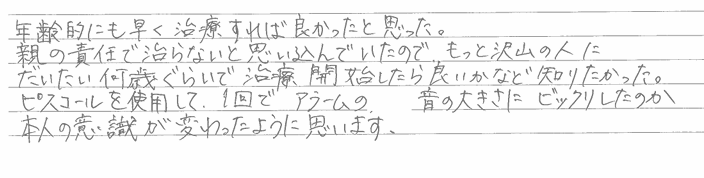 年齢的にも早く治療すれば良かったと思った。
親の責任で治らないと思い込んでいたので もっと沢山の人に
だいたい何歳ぐらいで治療開始したら良いかなど知りたかった。
ピスコールを使用して、1回で アラームの 音の大きさに ビックリしたのか
本人の意識が変わったように思います、